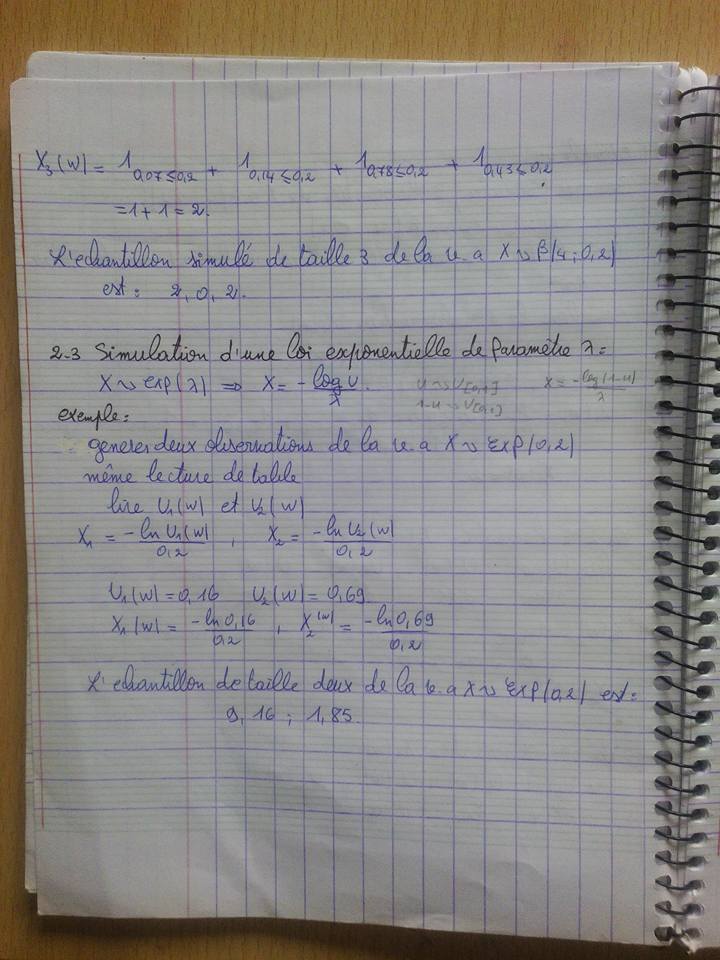 X₃(w) = 1_{0,07≤0,2} + 1_{0,14≤0,2} + 1_{0,78≤0,2} + 1_{0,43≤0,2}
= 1 + 1 = 2.
L'echantillon simulé de taille 3 de la v.a X ~ β(4; 0,2)
est : 2, 0, 2.
2-3 Simulation d'une loi exponentielle de paramètre λ =
X ~ exp(λ) ⇒ X = -log U / λ . U ~ U[0,1] X = -log(1-U) / λ
1-U ~ U[0,1]
exemple :
generer deux observations de la v.a X ~ Exp(0,2)
même lecture de table
lire U₁(w) et U₂(w)
X₁ = -ln U₁(w) / 0,2 , X₂ = -ln U₂(w) / 0,2
U₁(w) = 0,16 U₂(w) = 0,69
X₁(w) = -ln 0,16 / 0,2 , X₂(w) = -ln 0,69 / 0,2
L'echantillon de taille deux de la v.a X ~ Exp(0,2) est :
9,16 ; 1,85.